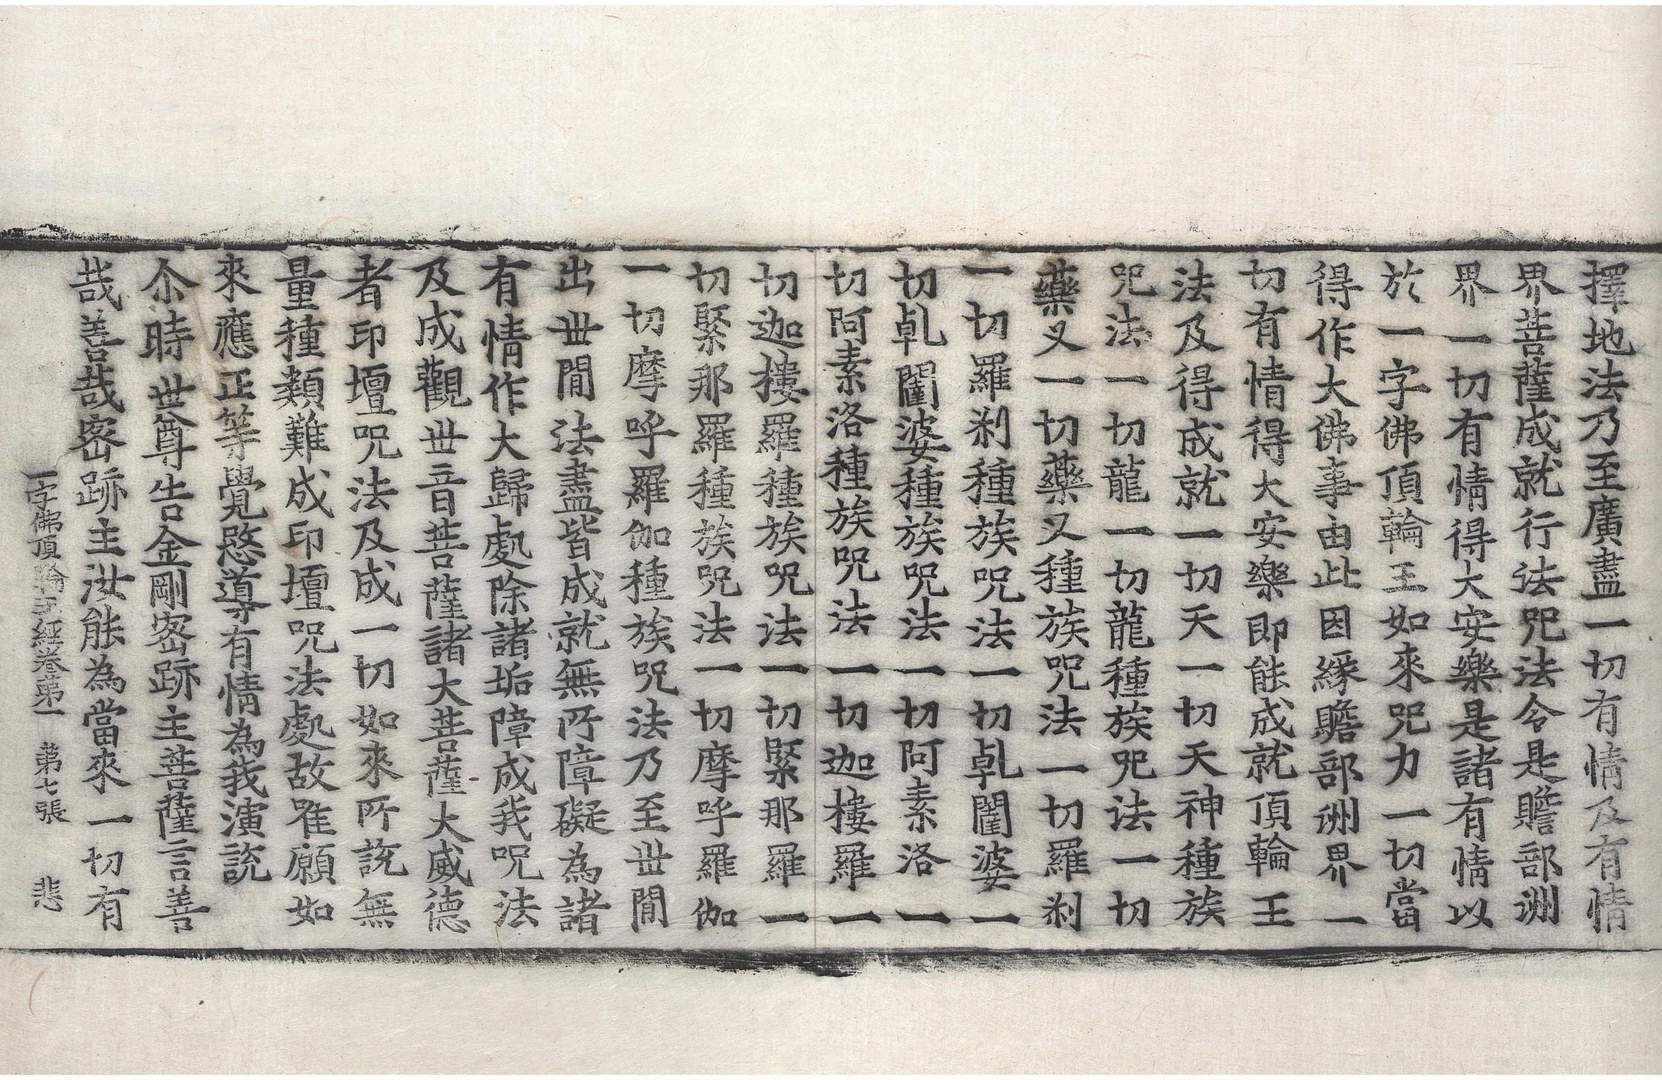 擇地法乃至廣盡一切有情及有情
界菩薩成就行法咒法令是贍部洲
界一切有情得大安樂是諸有情以
於一字佛頂輪王如來咒力一切當
得作大佛事由此因緣贍部洲界一
切有情得大安樂即能成就頂輪王
法及得成就一切天一切天神種族
咒法一切龍一切龍種族咒法一切
藥叉一切藥叉種族咒法一切羅剎
一切羅剎種族咒法一切乹闥婆一
切乹闥婆種族咒法一切阿素洛一
切阿素洛種族咒法一切迦樓羅一
切迦樓羅種族咒法一切緊那羅一
切緊那羅種族咒法一切摩呼羅伽
一切摩呼羅伽種族咒法乃至世間
出世間法盡皆成就無所障礙為諸
有情作大歸處除諸垢障成我咒法
及成觀世音菩薩諸大菩薩大威德
者印壇咒法及成一切如來所說無
量種類難成印壇咒法處故唯願如
來應正等覺愍導有情為我演說
尒時世尊告金剛密跡主菩薩言善
哉善哉密跡主汝能為當來一切有
一字佛頂輪王經卷第一 第七張 悲